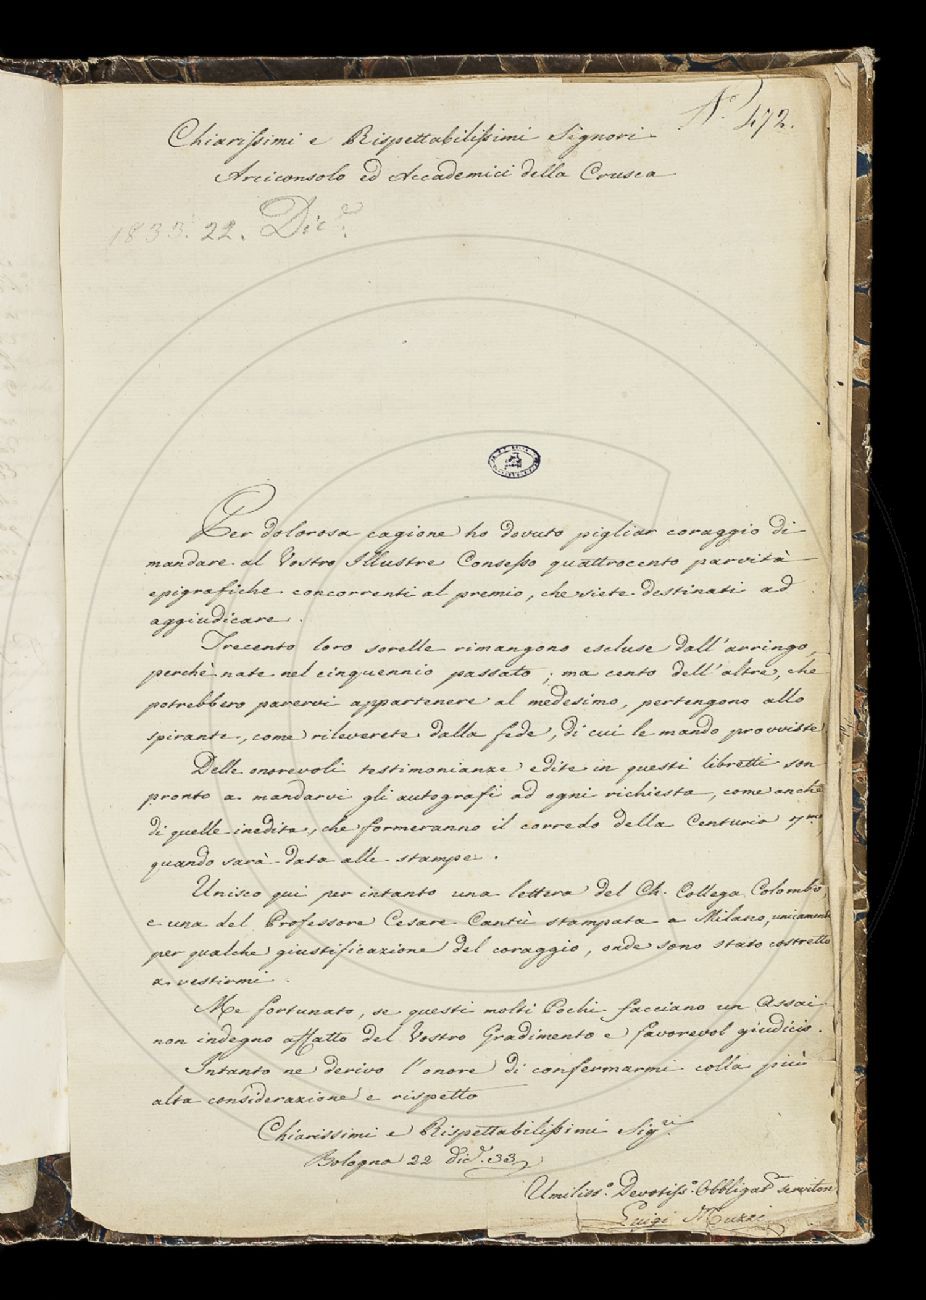 N.° 472.
Chiarissimi e Rispettabilissimi Signori
Arciconsolo ed Accademici della Crusca
1833. 22. Dic.e
Per dolorosa cagione ho dovuto pigliar coraggio di
mandare al Vostro Illustre Consesso quattrocento parvità
epigrafiche concorrenti al premio, che siete destinati ad
aggiudicare.
Trecento loro sorelle rimangono escluse dall'arringo,
perchè nate nel cinquennio passato; ma cento dell'altre, che
potrebbero parervi appartenere al medesimo, pertengono allo
spirante, come rileverete dalla fede, di cui le mando provviste
Delle onorevoli testimonianze edite in questi libretti son
pronto a mandarvi gli autografi ad ogni richiesta, come anche
di quelle inedite, che formeranno il corredo della Centuria 7.ma
quando sarà data alle stampe.
Unisco qui per intanto una lettera del Ch. Collega Colombo
e una del Professore Cesare Cantù stampata a Milano, unicamente
per qualche giustificazione del coraggio, onde sono stato costretto
a vestirmi.
Me fortunato, se questi molti Pochi facciano un Assai
non indegno affatto del Vostro Gradimento e favorevol giudicio.
Intanto ne derivo l'onore di confermarmi colla più
alta considerazione e rispetto
Chiarissimi e Rispettabilissimi Sig.ri
Bologna 22 dic.e 33
Umiliss.o Devotiss.o Obbligat.o servitore
Luigi Muzzi